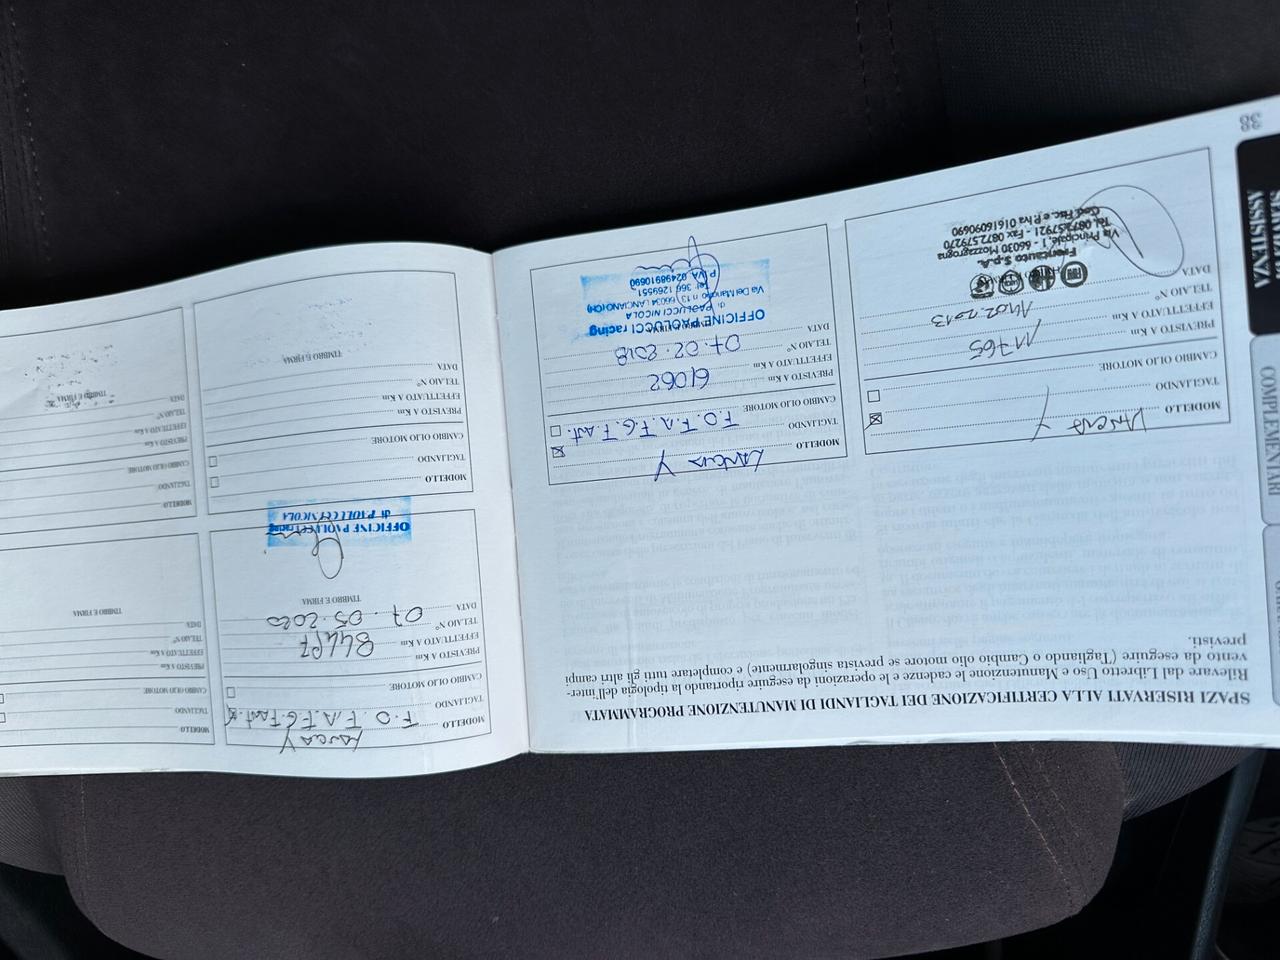 SPAZI RISERVATI ALLA CERTIFICAZIONE DEI TAGLIANDI DI MANUTENZIONE PROGRAMMATA
Rilevare dal Libretto Uso e Manutenzione le cadenze e le operazioni da eseguire riportando la tipologia dell'inter-
vento da eseguire (Tagliando o Cambio olio motore se prevista singolarmente) e completare tutti gli altri campi
previsti.
MODELLO Y
TAGLIANDO
CAMBIO OLIO MOTORE
PREVISTO A Km
EFFETTUATO A Km 11765
TELAIO N°
DATA
Fientauto S.p.A.
Via Principale, 1 - 66030 Mozzagrogna
Tel. 0872.57921 - Fax 0872.579270
Cod. Fisc. e P.Iva 01616090690
38
ASSISTENZA
COMPLEMENTARI
MODELLO Lancia Y
TAGLIANDO F.O. F.A. F.G. F.Ant.
CAMBIO OLIO MOTORE
PREVISTO A Km
EFFETTUATO A Km 61062
TELAIO N°
DATA 07.02.2018
OFFICINE PAOLUCCI racing
di
PAOLUCCI NICOLA
66034 LANCIANO (CH)
Tel. 366 1269551
P.IVA 02498910690
MODELLO Lancia Y
TAGLIANDO F.O. F.A. F.G. F.ant.
CAMBIO OLIO MOTORE
PREVISTO A Km
EFFETTUATO A Km
TELAIO N°
DATA 07.05.2020
TIMBRO E FIRMA
OFFICINE PAOLUCCI racing
di PAOLUCCI NICOLA
MODELLO
TAGLIANDO
CAMBIO OLIO MOTORE
PREVISTO A Km
EFFETTUATO A Km
TELAIO N°
DATA
TIMBRO E FIRMA
MODELLO
TAGLIANDO
CAMBIO OLIO MOTORE
PREVISTO A Km
EFFETTUATO A Km
TELAIO N°
DATA
TIMBRO E FIRMA
MODELLO
TAGLIANDO
CAMBIO OLIO MOTORE
PREVISTO A Km
EFFETTUATO A Km
TELAIO N°
DATA
TIMBRO E FIRMA